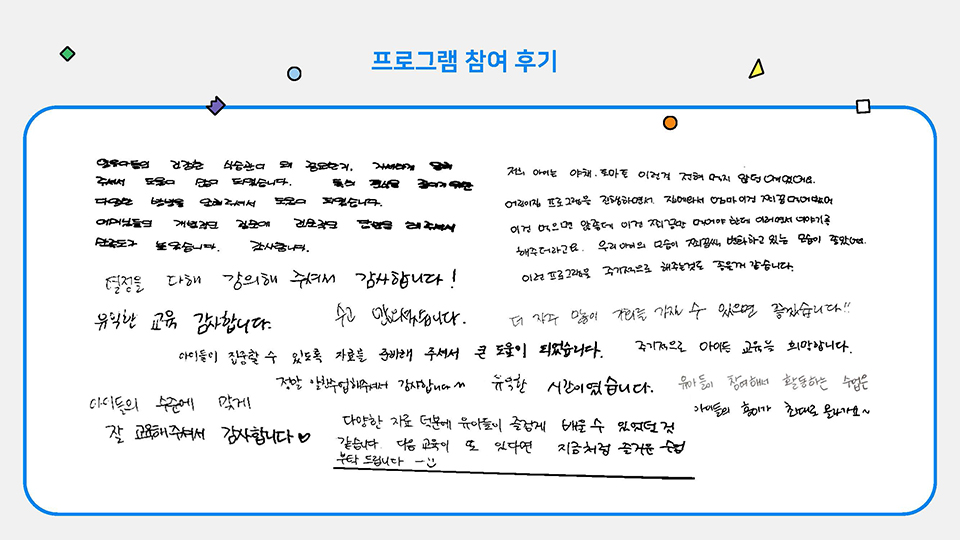 프로그램 참여 후기
영유아들의 건강한 식습관이 왜 중요한지, 자세하게 알려
주셔서 도움이 많이 되었습니다. 편식을 줄이기 위한
다양한 방법을 알려주셔서 도움이 되었습니다.
어머님들의 개별적인 질문에 전문적인 답변을 해 주셔서
만족도가 높았습니다. 감사합니다.
저희 아이는 야채, 토마토 이런걸 전혀 먹지 않던 아이였어요.
어린이집 프로그램을 진행하면서, 집에와서 엄마 이건 찌끔 먹어봤어
이건 먹으면 않좋데 이건 찌끔만 먹어야 한데 이러면서 이야기를
해주더라고요. 우리 아이의 모습이 찌끔씩 변화하고 있는 모습이 좋았어요.
이런 프로그램을 주기적으로 해주는것도 좋은거 같습니다.
열정을 다해 강의해 주셔서 감사합니다!
유익한 교육 감사합니다.
수고 많으셨습니다.
더 자주 많이 기회를 가질 수 있으면 좋겠습니다!!
아이들이 집중할 수 있도록 자료을 준비해 주셔서 큰 도움이 되었습니다.
주기적으로 아이들 교육을 희망합니다.
정말 알찬수업해주셔서 감사합니다~
유익한 시간이였습니다.
유아들이 참여해서 활동하는 수업은
아이들의 흥미가 최대로 올라가요~
아이들의 수준에 맞게
잘 교육해주셔서 감사합니다♡
다양한 자료 덕분에 유아들이 즐겁게 배울 수 있었던 것
같습니다. 다음 교육이 또 있다면 지금처럼 즐거운 수업
부탁 드립니다